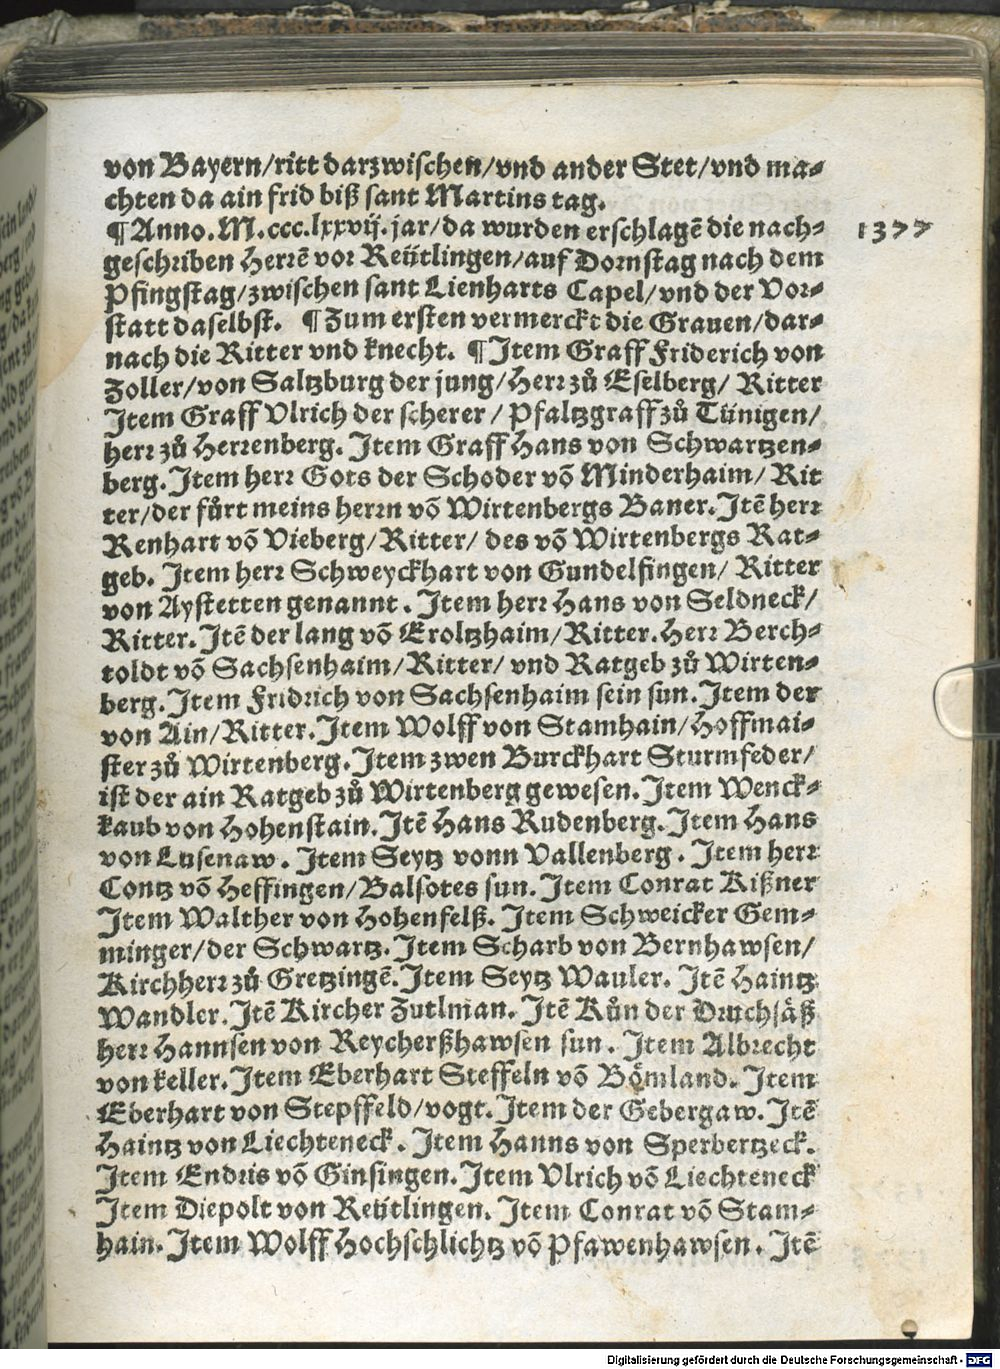 von Bayern/ritt darzwischen/vnd ander Stet/vnd ma⸗
chten da ain frid biß sant Martins tag.
¶Anno.M.ccc.lxxvij.jar/da wurden erschlagē die nach⸗
1377
geschriben Herrē vor Reütlingen/auf Dornstag nach dem
Pfingstag/zwischen sant Lienharts Capel/vnd der Vor⸗
statt daselbst. ¶Zum ersten vermerckt die Grauen/dar⸗
nach die Ritter vnd knecht. ¶Item Graff Friderich von
Zoller/von Saltzburg der jung/Herr zů Eselberg/ Ritter
Item Graff Vlrich der scherer/ Pfaltzgraff zů Tünigen/
herr zů Herrenberg. Item Graff Hans von Schwartzen⸗
berg. Item herr Gots der Schoder võ Minderhaim/ Rit
ter/der fůrt meins herrn võ Wirtenbergs Baner. Itē herr
Renhart võ Vieberg/Ritter/ des võ Wirtenbergs Rat⸗
geb. Item herr Schweyckhart von Gundelfingen/ Ritter
von Aystetten genannt. Item herr Hans von Seldneck/
Ritter. Itē der lang võ Eroltzhaim/Ritter. Herr Berch⸗
toldt võ Sachsenhaim/Ritter/ vnd Ratgeb zů Wirten⸗
berg. Item Fridrich von Sachsenhaim sein sun. Item der
von Ain/Ritter. Item Wolff von Stamhain/Hoffmai⸗
ster zů Wirtenberg. Item zwen Burckhart Sturmfeder/
ist der ain Ratgeb zů Wirtenberg gewesen. Item Wenck⸗
kaub von Hohenstain. Itē Hans Rudenberg. Item Hans
von Lusenaw. Item Seytz vonn Vallenberg. Item herr
Contz võ Heffingen/Balsotes sun. Item Conrat Kißner
Item Walther von Hohenfelß. Item Schweicker Gem⸗
minger/der Schwartz. Item Scharb von Bernhawsen/
Kirchherr zů Gretzingē. Item Seytz Wauler. Itē Haintz
Wandler. Itē Kircher Zutlman. Itē Kůn der Druchsäß
herr Hannsen von Reycherßhawsen sun. Item Albrecht
von keller. Item Eberhart Steffeln võ Bömland. Item
Eberhart von Stepffeld/vogt. Item der Gebergaw. Itē
Haintz von Liechteneck. Item Hanns von Sperbertzeck.
Item Endris võ Ginsingen. Item Vlrich võ Liechteneck
Item Diepolt von Reütlingen. Item Conrat võ Stam⸗
hain. Item Wolff Hochschlichtz võ Pfawenhawsen. Itē
Digitalisierung gefördert durch die Deutsche Forschungsgemeinschaft - DFG